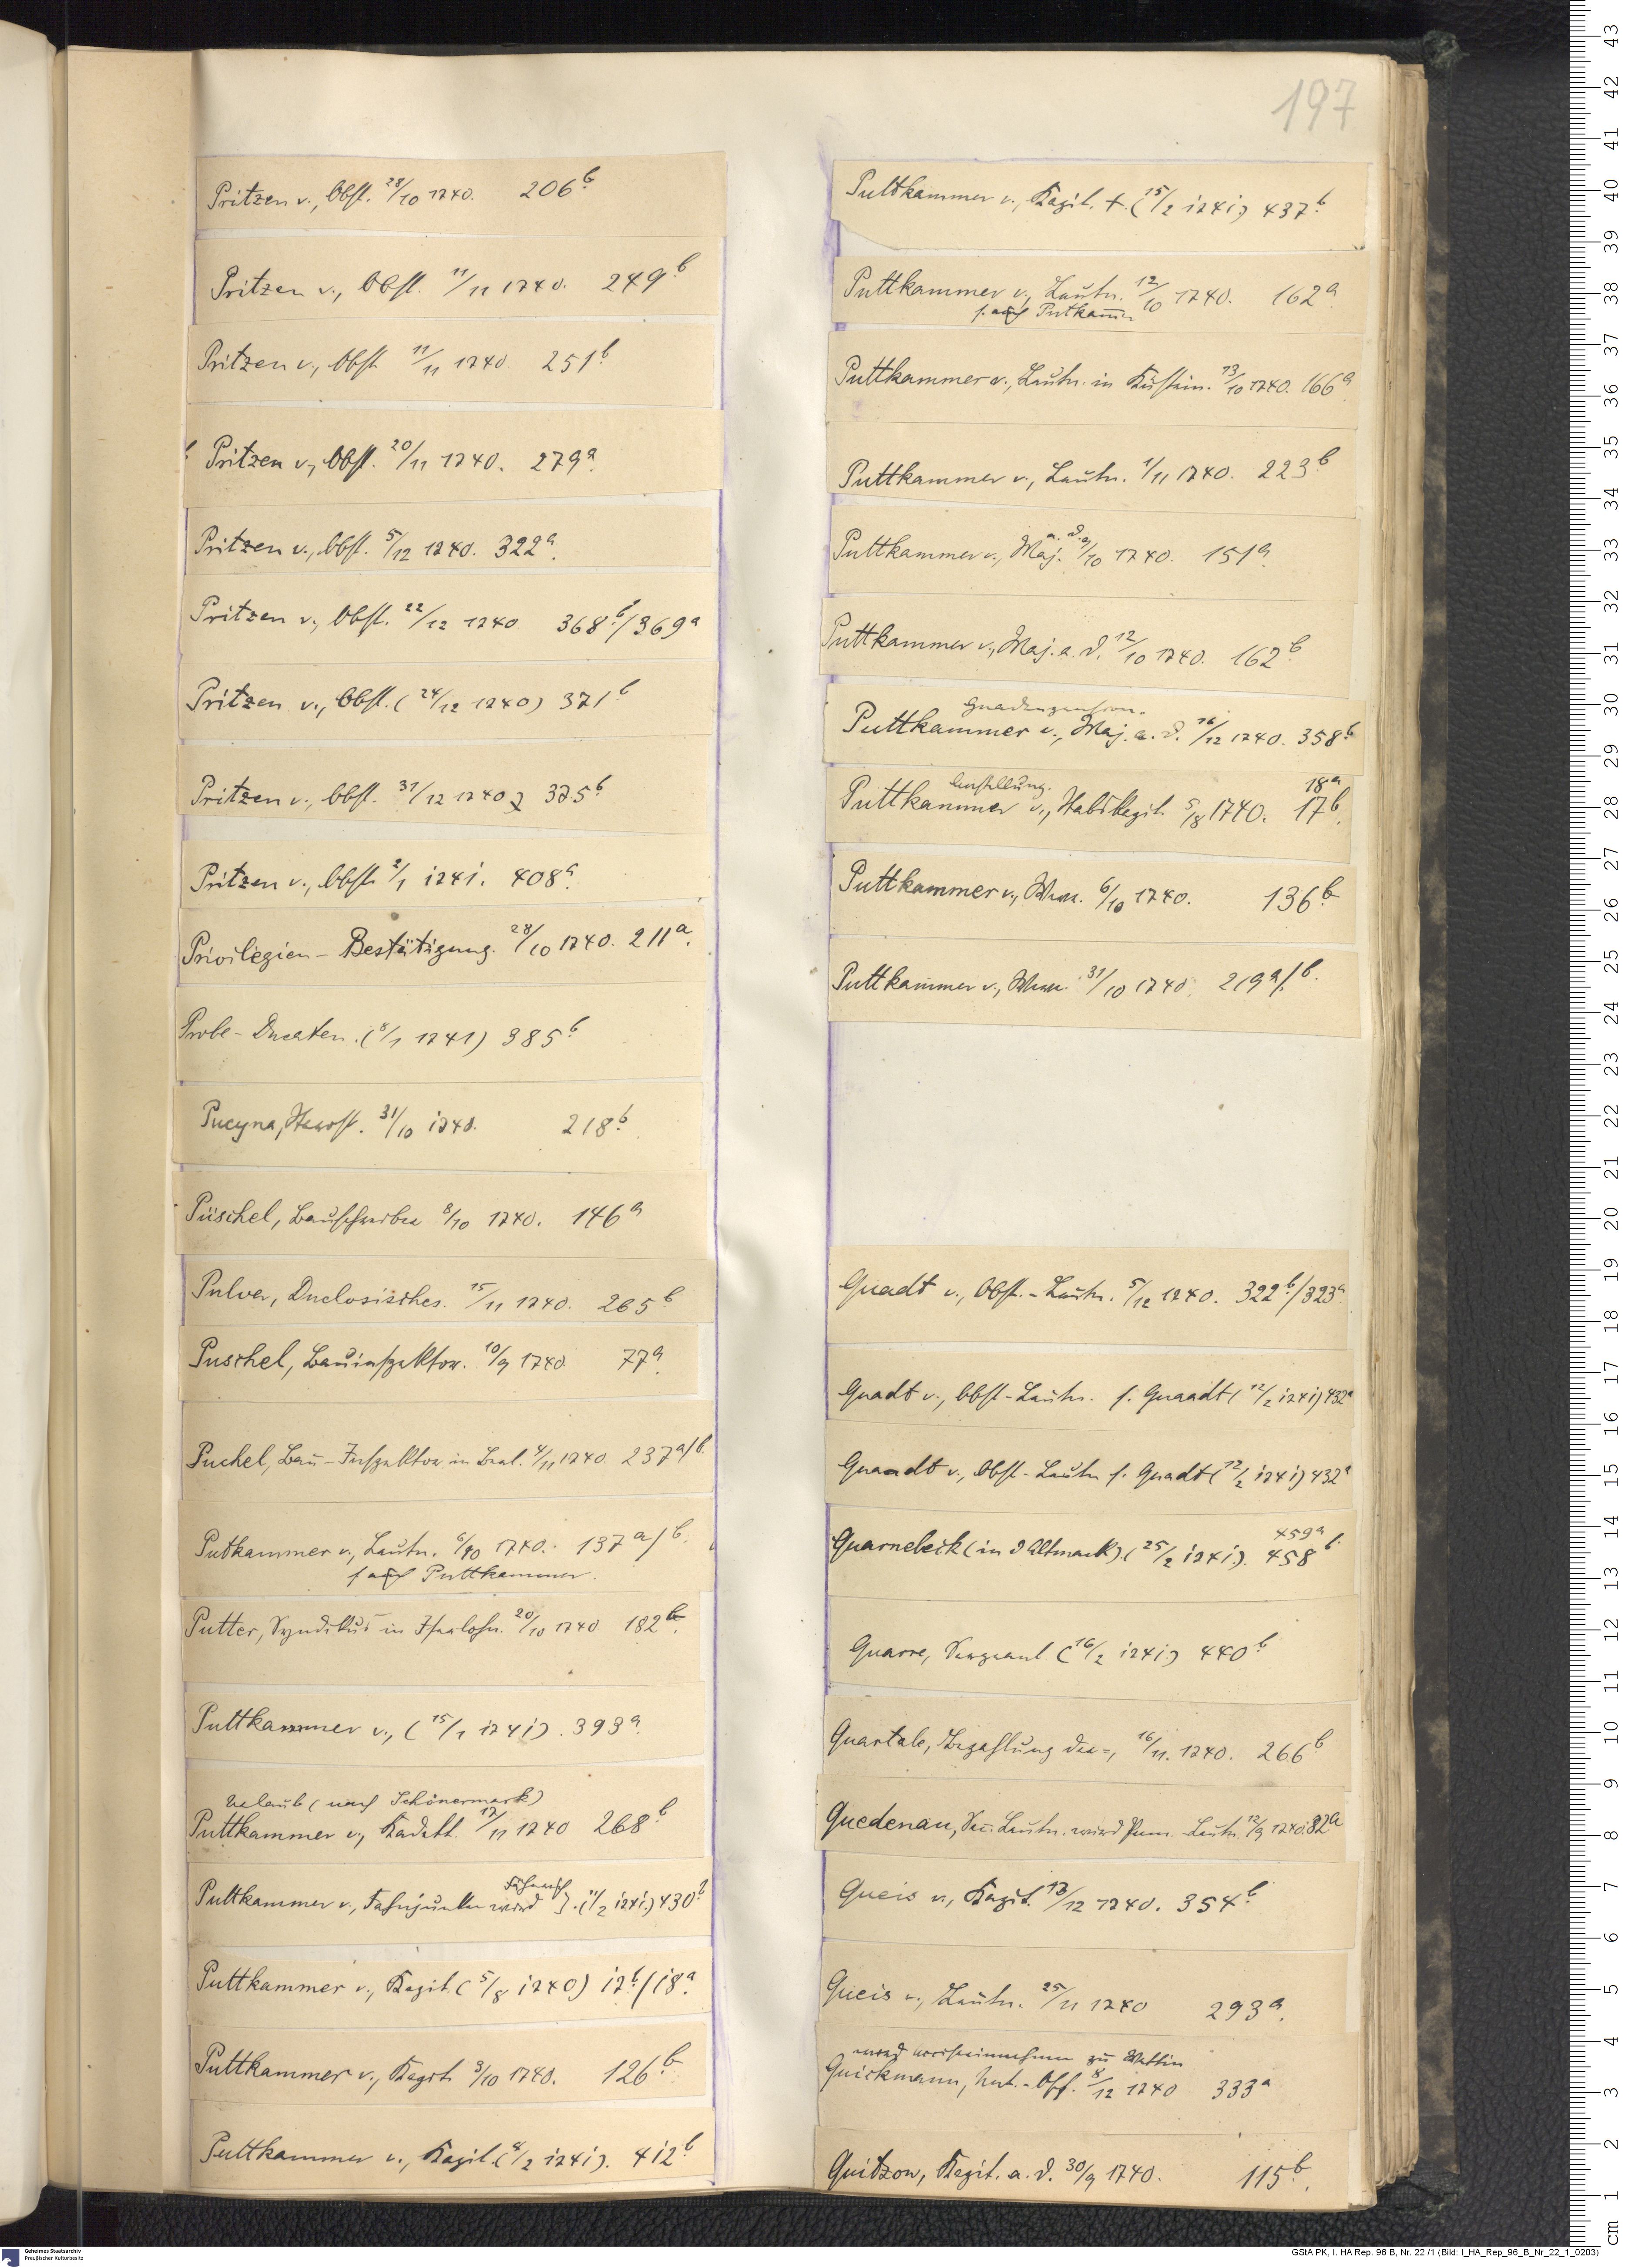 197
Pritzen v., Obst. 28/10 1740. 206b.
Pritzen v., Obst. 11/11 1740. 249b
Pritzen v., Obst. 11/11 1740. 251b.
Pritzen v., Obst. 20/11 1740. 279a.
Pritzen v., Obst. 5/12 1740. 322a.
Pritzen v., Obst. 22/12 1740. 368b./369a
Pritzen v., Obst. (24/12 1740) 371b
Pritzen v., Obst. 31/12 1740 375b
Pritzen v., Obst. 2/1 1741. 408a.
Privilegien-Bestätigung. 28/10 1740. 211a.
Probe-Ducaten. (8/1 1741) 385b
Pucyna, Starost. 31/10 1740. 218b.
Püschel, Bauschreiber 8/10 1740. 146a
Pulver, Duclosisches. 15/11 1740. 265b
Puschel, Bauinspektor. 10/9 1740. 77a.
Puchel, Bau-Inspektor in Berl. 4/11 1740. 237a/b.
Putkammer v., Lautn. 6/10 1740. 137a/b.
s. auch Puttkammer.
Putter, Syndikus in Iserlohn. 20/10 1740 182b.
Puttkammer v., (15/1 1741). 393a.
Urlaub (nach Schönermark)
Puttkammer v., Kadett. 17/11 1740 268b
Fähnrich
Puttkammer v., Fahnjunker wird }. (11/2 1741.) 430b
Puttkammer v., Kapit. (5/8 1740) 17b./18a.
Puttkammer v., Kapit. 3/10 1740. 126b.
Puttkammer v., Kapit. (4/2 1741). 412b.
Puttkammer v., Kapit. †. (15/2 1741) 437b.
Puttkammer v., Lautn. 12/10 1740. 162a
s. auch Putkammer
Puttkammer v., Lautn. in Küstrin. 13/10 1740. 166a
Puttkammer v., Lautn. 1/11 1740. 223b
a. D.
Puttkammer v., Maj. 9/10 1740. 151a.
Puttkammer v., Maj. a. D. 12/10 1740. 162b.
Gnadenpension.
Puttkammer v., Maj. a. D. 16/12 1740. 358b.
Anstellung. 18a
Puttkammer v., Stabskapit. 5/8 1740. 17b.
Puttkammer v., Wwe. 6/10 1740. 136b.
Puttkammer v., Wwe. 31/10 1740. 219a/b.
Quadt v., Obst.-Lautn. 5/12 1740. 322b./323a
Quadt v., Obst-Lautn. s. Quaadt (12/2 1741) 432a
Quaadt v., Obst-Lautn s. Quadt (12/2 1741) 432a
459a
Quarnebeck (in d Altmark) (25/2 1741). 458b.
Quarre, Sergeant (16/2 1741) 440b
Quartale, Bezahlung der=, 16/11. 1740. 266b
Quedenau, Sec. Lautn. wird Prem. Lautn. 12/9 1740. 82a
Queis v., Kapit. 13/12 1740. 354b.
Queis v., Lautn. 25/11 1740 293a.
zu Wettin
Quickmann, Unt.-Off. 8/12 1740 333a
Quitzow, Kapit. a. D. 30/9 1740. 115b.
43
42
41
40
39
38
37
36
35
34
33
32
31
30
29
28
27
26
25
24
23
22
21
20
19
18
17
16
15
14
13
12
11
10
9
8
7
6
5
4
3
2
1
cm
Geheimes Staatsarchiv
Preußischer Kulturbesitz
GStA PK, I. HA Rep. 96 B, Nr. 22 /1 (Bild: I_HA_Rep_96_B_Nr_22_1_0203)